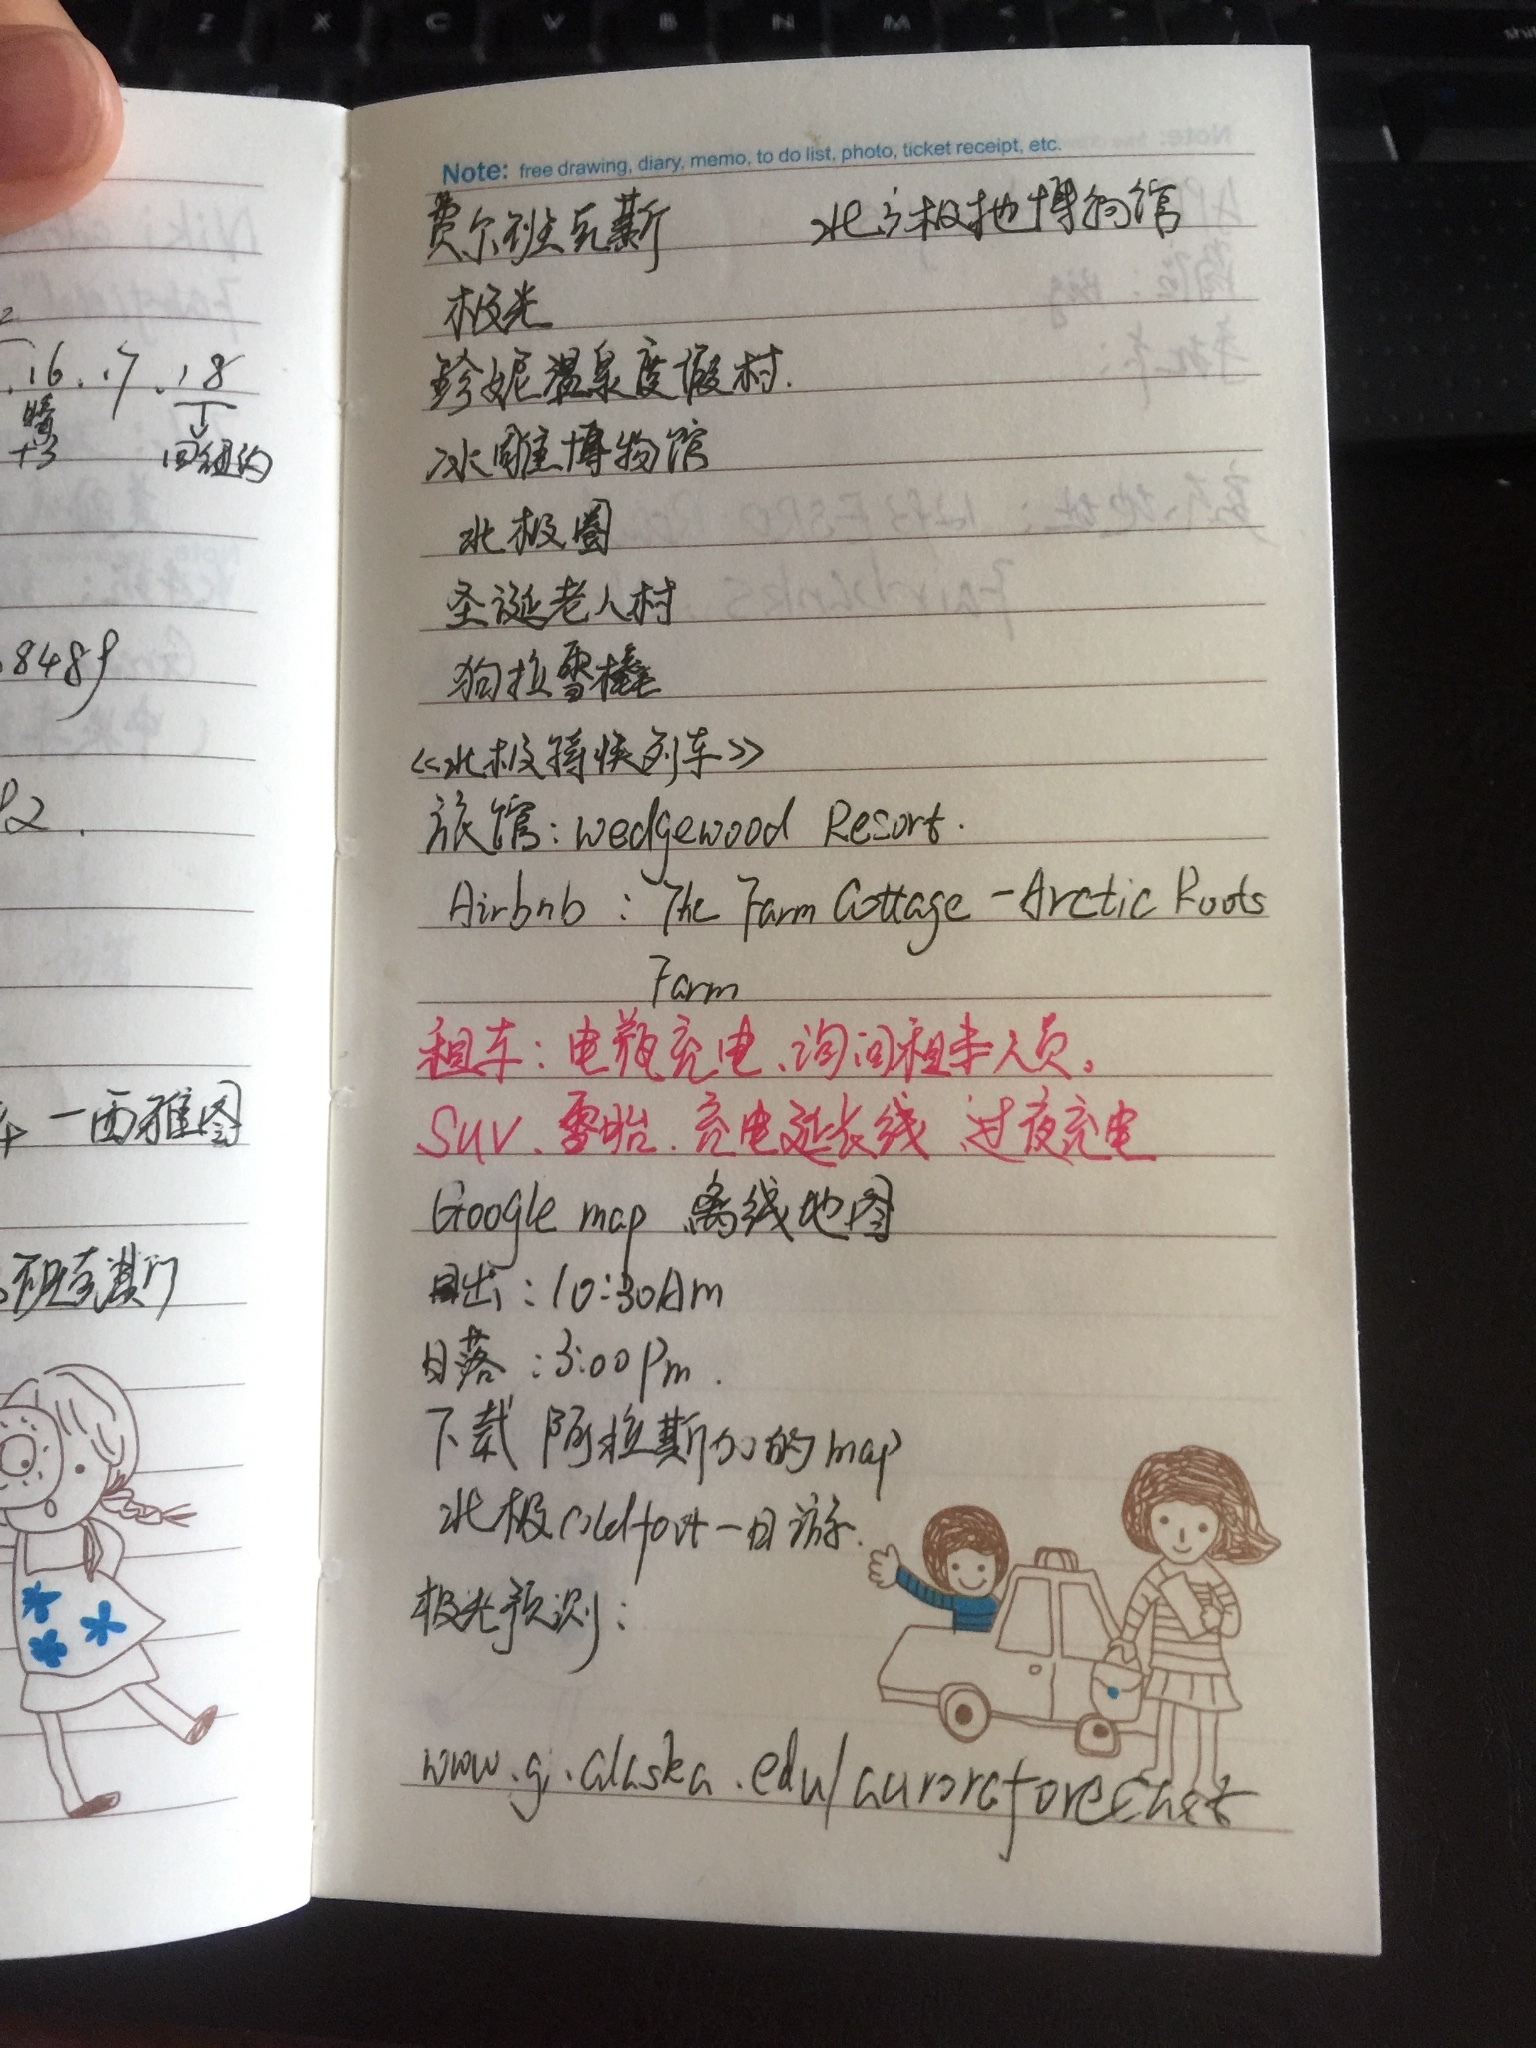 Z X C V B N M
Note: free drawing, diary, memo, to do list, photo, ticket receipt, etc.
费尔班克斯 北方极地博物馆
极光
珍妮温泉度假村.
冰雕博物馆
北极圈
圣诞老人村
狗拉雪橇
《北极特快列车》
旅馆: Wedgewood Resort.
Airbnb : The Farm Cottage - Arctic Roots
Farm
租车: 电瓶充电、询问租车人员。
SUV、雪胎. 充电延长线 过夜充电
Google map 离线地图
日出: 10:30Am
日落: 3:00pm.
下载 阿拉斯加的map
北极coldfoot一日游.
极光预测:
www.gi.alaska.edu/auroraforecast
.16.17.18
回纽约
8489
一西雅图